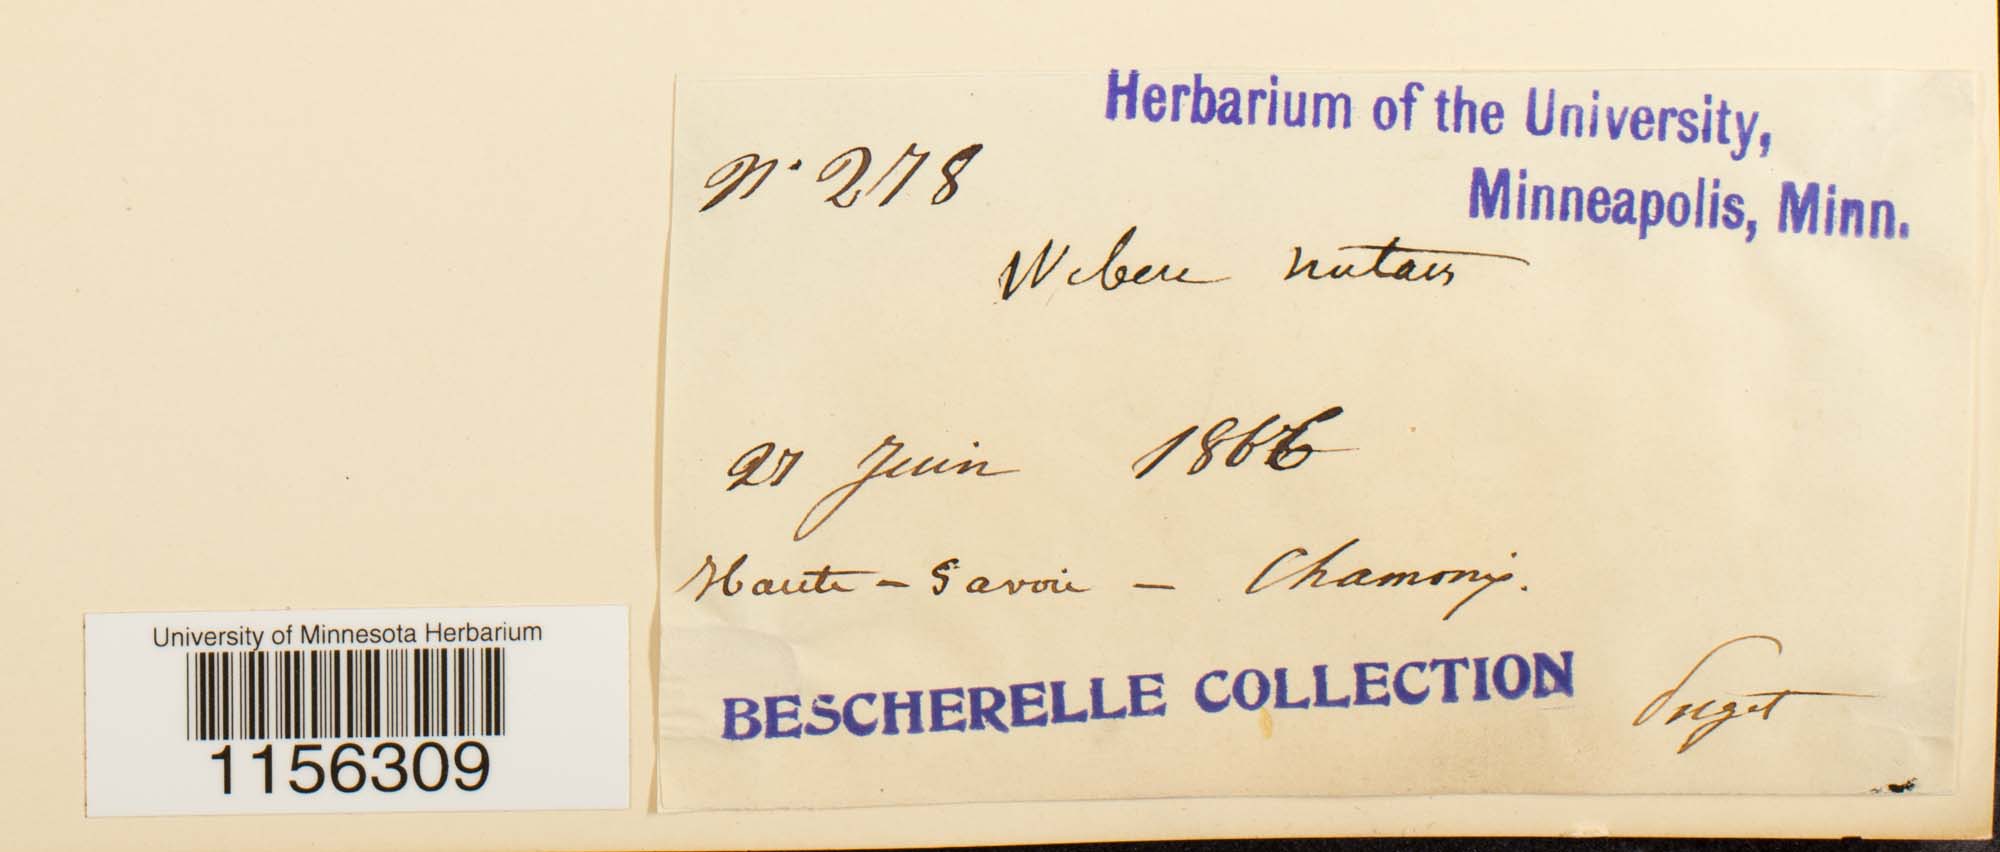 Herbarium of the University,
Minneapolis, Minn.
N. 278
Webera nutans
27 Juin 1866
Haute-Savoie - Chamonix.
BESCHERELLE COLLECTION
Puget
University of Minnesota Herbarium
1156309